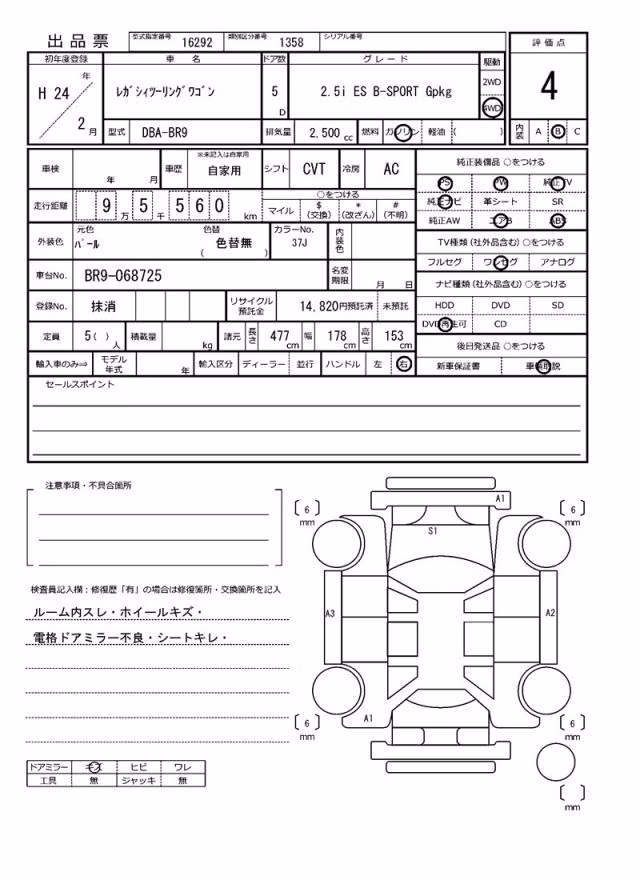 出品票 型式指定番号 16292 類別区分番号 1358 シリアル番号
初年度登録 車 名 ドア数 グレード 駆動 評価点
H 24 年 ﾚｶﾞｼｨﾂｰﾘﾝｸﾞﾜｺﾞﾝ 5 D 2.5i ES B-SPORT Gpkg 2WD 4WD 4
2 月 型式 DBA-BR9 排気量 2,500 cc 燃料 ガソリン 軽油 ( ) 内装 A B C
車検 年 月 車歴 ※未記入は自家用 自家用 シフト CVT 冷房 AC 純正装備品 ○をつける
PS PW 純正TV
走行距離 9 万 5 千 5 6 0 km ○をつける
マイル $ (交換) * (改ざん) # (不明) 純正ナビ 革シート SR
純正AW エアB ABS
外装色 元色 ﾊﾟｰﾙ 色替 ( 色替無 ) カラーNo. 37J 内装色 TV種類 (社外品含む) ○をつける
フルセグ ワンセグ アナログ
車台No. BR9-068725 名変期限 月 日 ナビ種類 (社外品含む) ○をつける
登録No. 抹消 リサイクル預託金 14,820円預託済 未預託 HDD DVD SD
DVD再生可 CD
定員 5( ) 人 積載量 kg 諸元 長さ 477 cm 幅 178 cm 高さ 153 cm 後日発送品 ○をつける
輸入車のみ⇒ モデル年式 年 輸入区分 ディーラー 並行 ハンドル 左 右 新車保証書 車輌取説
セールスポイント
注意事項・不具合箇所
A1
( 6 ) mm ( 6 ) mm
S1
検査員記入欄：修復歴「有」の場合は修復箇所・交換箇所を記入
ルーム内スレ・ホイールキズ・
A3 A2
電格ドアミラー不良・シートキレ・
A1
( 6 ) mm ( 6 ) mm
ドアミラー キズ ヒビ ワレ
工具 無 ジャッキ 無
( ) mm